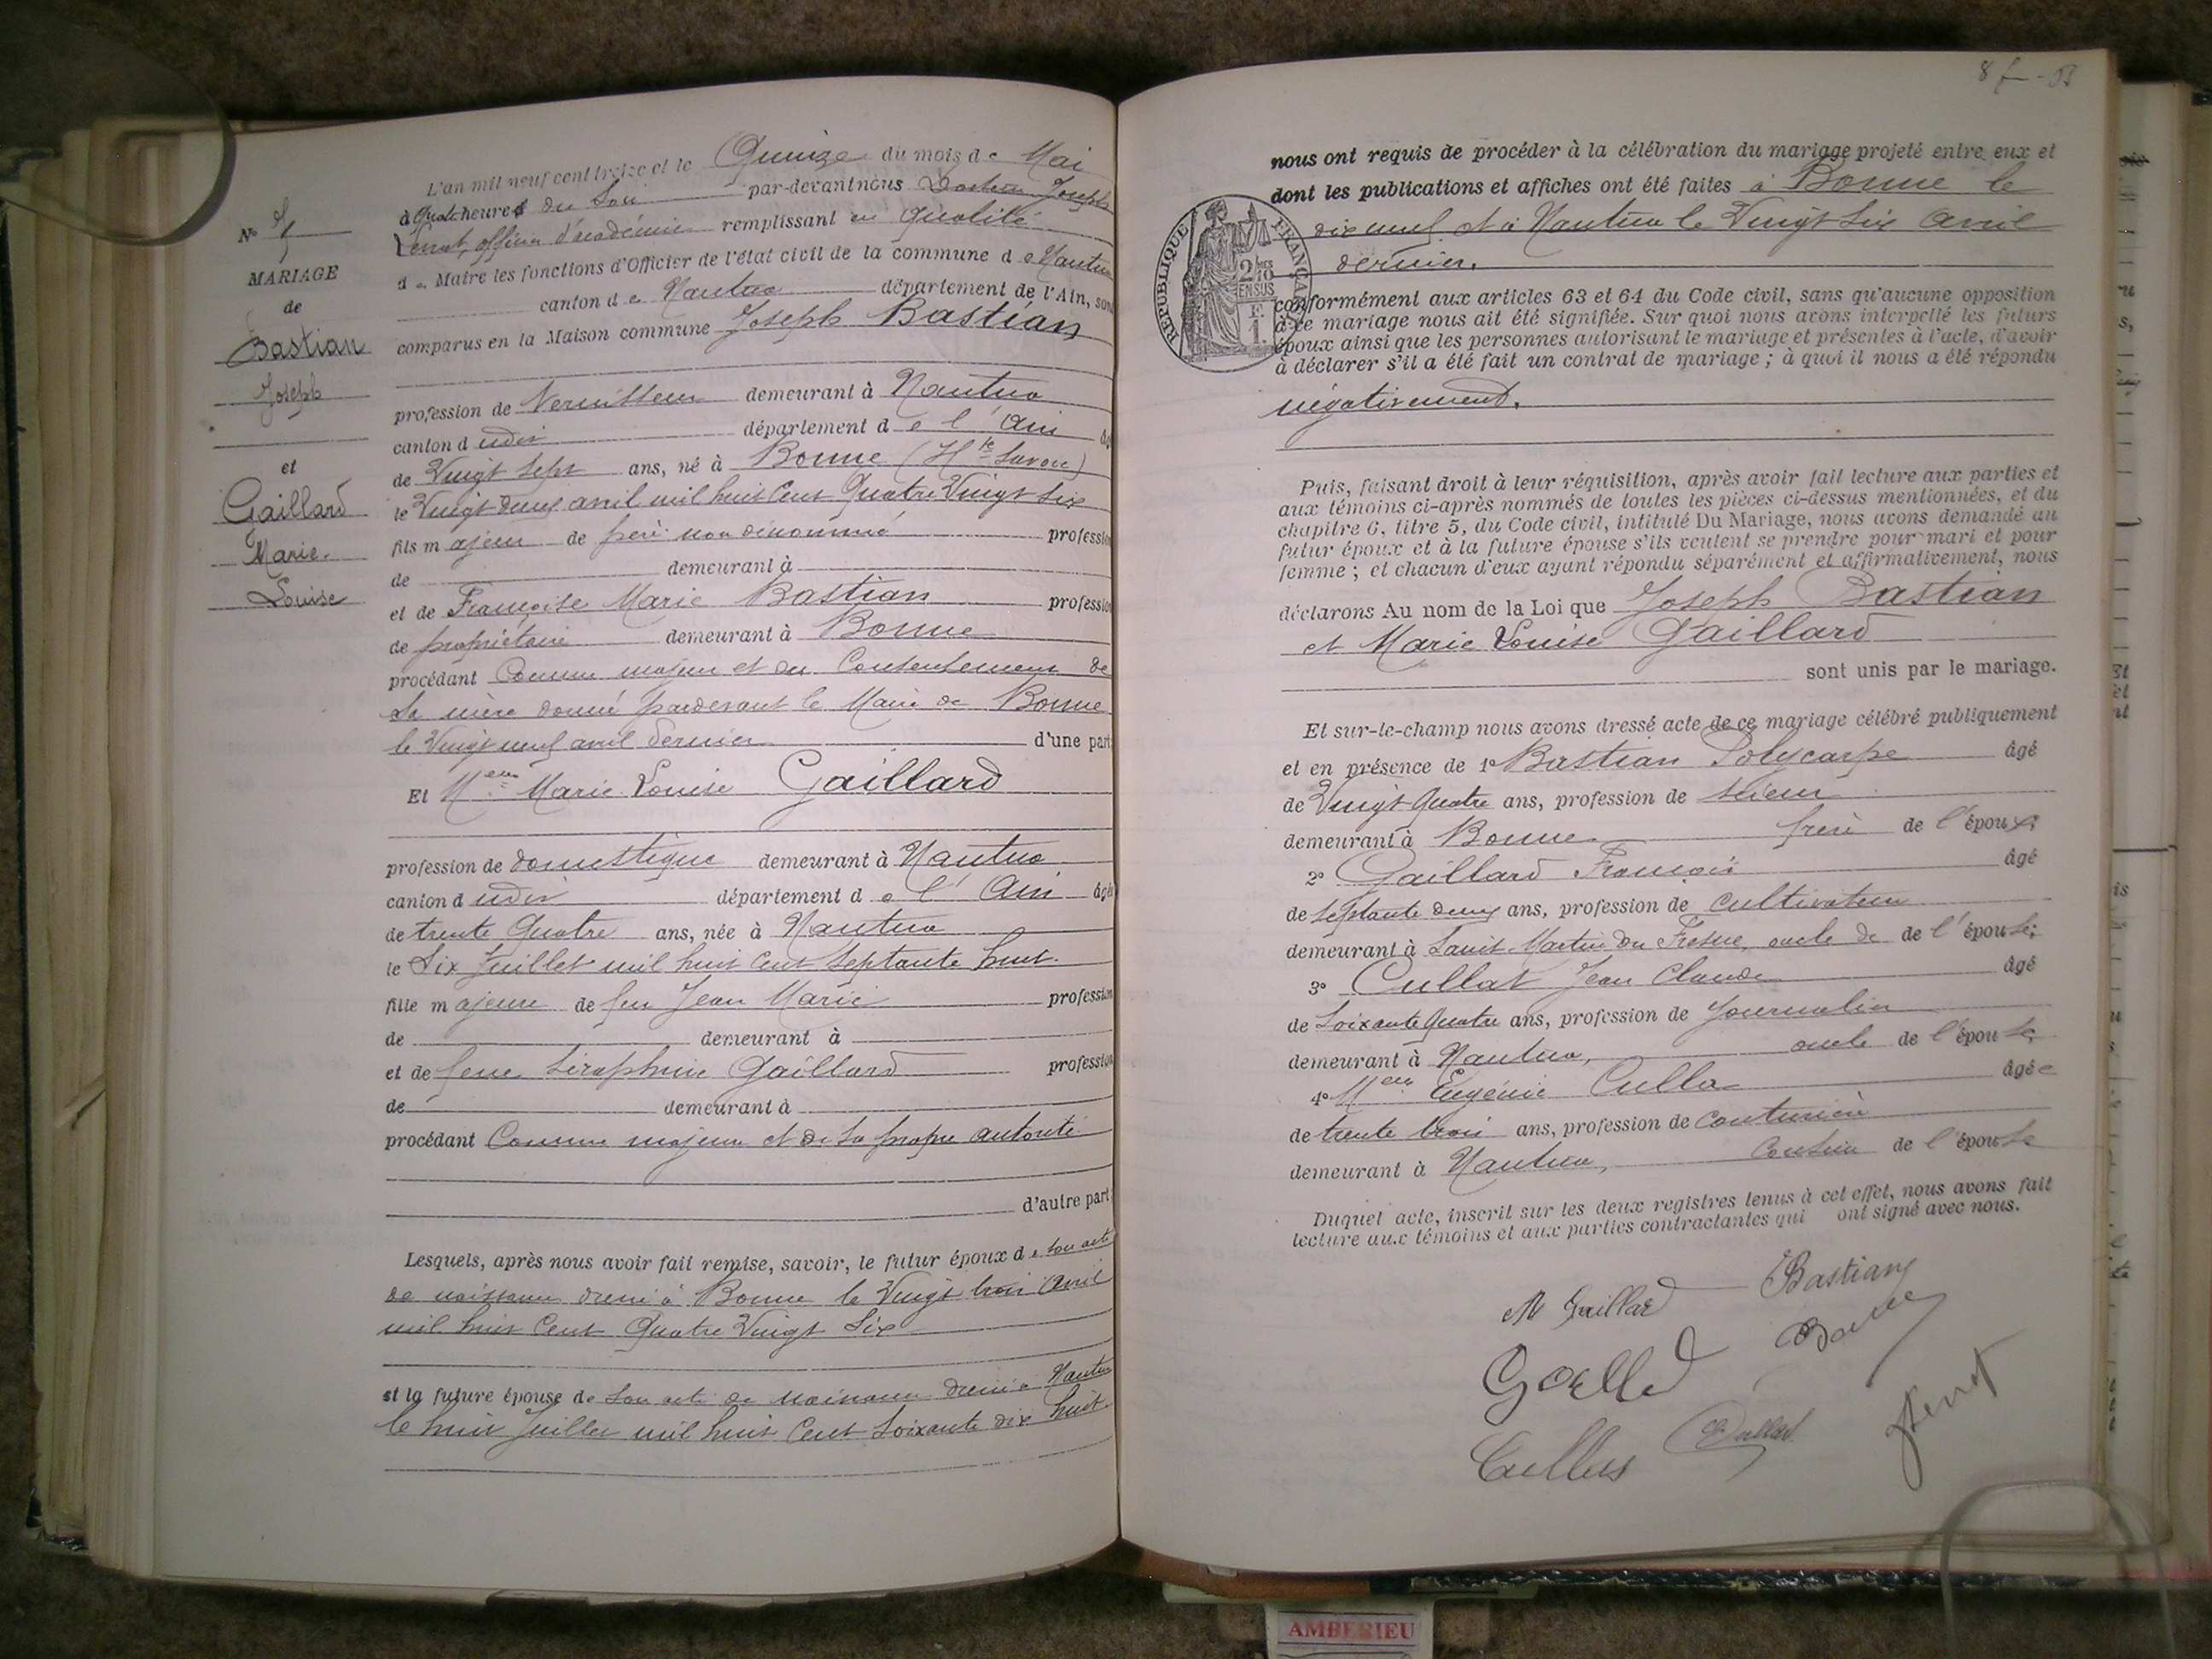 L'an mil neuf cent treize et le Quinze du mois de Mai
à Quatre heures du Soir par-devant nous Docteur Joseph
officier d'académie remplissant en qualité
de Maire les fonctions d'Officier de l'état civil de la commune de Nantua
canton de Nantua département de l'Ain, sont
comparus en la Maison commune Joseph Bastian
N°
MARIAGE
de
Bastian
Joseph
et
Gaillard
Marie-
Louise
profession de Vernisseur demeurant à Nantua
canton dudit département de l'Ain âgé
de Vingt Sept ans, né à Bonne (Hte Savoie)
le Vingt deux avril mil huit Cent Quatre Vingt Six
fils majeur de père non dénommé profession
de demeurant à
et de Françoise Marie Bastian profession
de propriétaire demeurant à Bonne
procédant Comme majeur et du Consentement de
Sa mère donné pardevant le Maire de Bonne
le Vingt neuf avril dernier d'une part
Et Melle Marie Louise Gaillard
profession de domestique demeurant à Nantua
canton dudit département de l'Ain âgée
de trente Quatre ans, née à Nantua
le Six Juillet mil huit Cent Septante huit
fille majeure de feu Jean Marie profession
de demeurant à
et de feue Séraphine Gaillard profession
de demeurant à
procédant Comme majeure et de Sa propre autorité
d'autre part;
Lesquels, après nous avoir fait remise, savoir, le futur époux de Son acte
de naissance dressé à Bonne le Vingt trois Avril
mil huit Cent Quatre Vingt Six
et la future épouse de Son acte de naissance dressé à Nantua
le huit Juillet mil huit Cent Soixante dix huit
nous ont requis de procéder à la célébration du mariage projeté entre eux et
dont les publications et affiches ont été faites à Bonne le
dix neuf et à Nantua le Vingt Six Avril
dernier.
RÉPUBLIQUE FRANÇAISE
2/10 EN SUS
F. 1.
conformément aux articles 63 et 64 du Code civil, sans qu'aucune opposition
à ce mariage nous ait été signifiée. Sur quoi nous avons interpellé les futurs
époux ainsi que les personnes autorisant le mariage et présentes à l'acte, d'avoir
à déclarer s'il a été fait un contrat de mariage ; à quoi il nous a été répondu
négativement.
Puis, faisant droit à leur réquisition, après avoir fait lecture aux parties et
aux témoins ci-après nommés de toutes les pièces ci-dessus mentionnées, et du
chapitre 6, titre 5, du Code civil, intitulé Du Mariage, nous avons demandé au
futur époux et à la future épouse s'ils veulent se prendre pour mari et pour
femme ; et chacun d'eux ayant répondu séparément et affirmativement, nous
déclarons Au nom de la Loi que Joseph Bastian
et Marie Louise Gaillard
sont unis par le mariage.
Et sur-le-champ nous avons dressé acte de ce mariage célébré publiquement
et en présence de 1° Bastian Polycarpe âgé
de Vingt Quatre ans, profession de scieur
demeurant à Bonne frère de l'époux;
2° Gaillard François âgé
de septante deux ans, profession de cultivateur
demeurant à Saint Martin du Fresne, oncle de de l'épouse;
3° Cullat Jean Claude âgé
de Soixante Quatre ans, profession de Journalier
demeurant à Nantua, oncle de l'épouse,
4° Melle Eugénie Culla âgée
de trente trois ans, profession de Couturière
demeurant à Nantua, Cousine de l'épouse
Duquel acte, inscrit sur les deux registres tenus à cet effet, nous avons fait
lecture aux témoins et aux parties contractantes qui ont signé avec nous.
M Gaillard Bastian
AMBERIEU